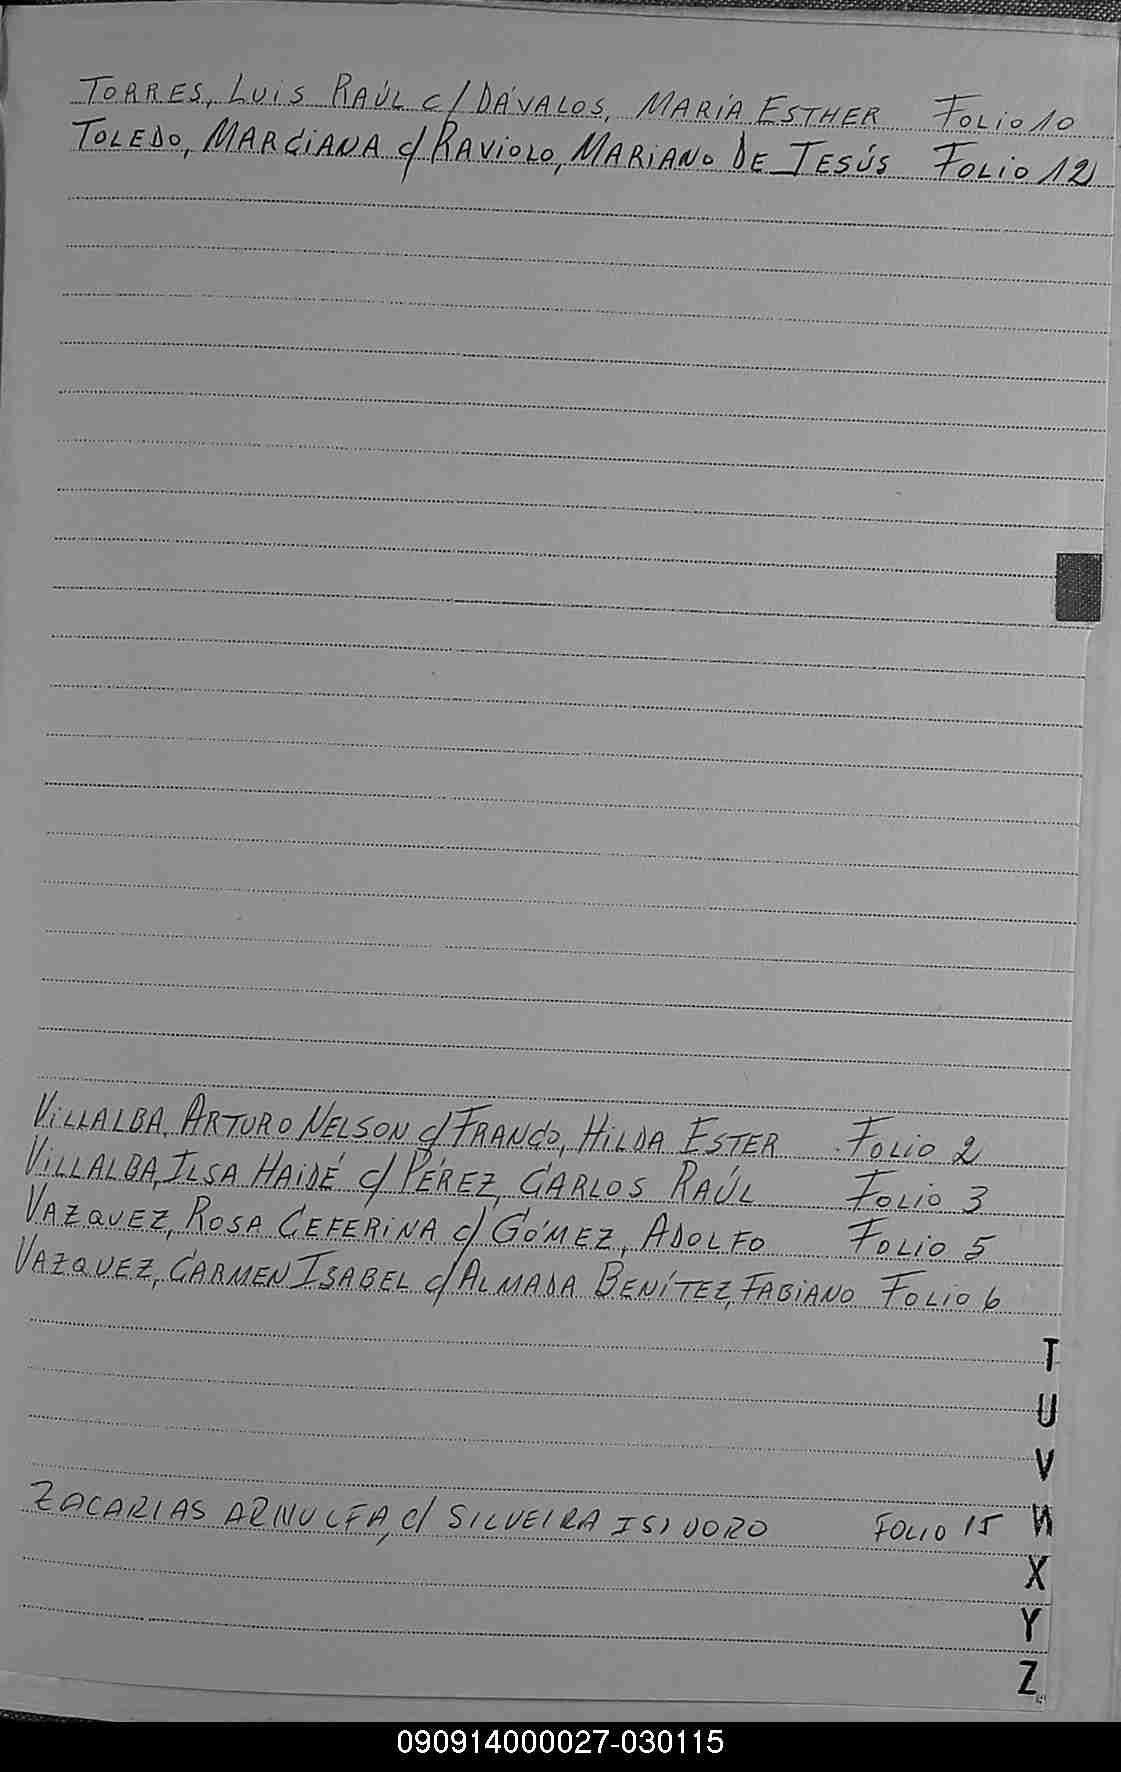 TORRES, LUIS RAÚL c/ DÁVALOS, MARÍA ESTHER FOLIO 10
TOLEDO, MARCIANA c/ RAVIOLO, MARIANO DE JESÚS FOLIO 12
VILLALBA, ARTURO NELSON c/ FRANCO, HILDA ESTER FOLIO 2
VILLALBA, ILSA HAIDÉ c/ PÉREZ, CARLOS RAÚL FOLIO 3
VAZQUEZ, ROSA CEFERINA c/ GÓMEZ, ADOLFO FOLIO 5
VAZQUEZ, CARMEN ISABEL c/ ALMADA BENÍTEZ, FABIANO FOLIO 6
T
U
V
ZACARIAS ARNULFA, c/ SILVEIRA ISIDORO FOLIO 15
W
X
Y
Z
090914000027-030115